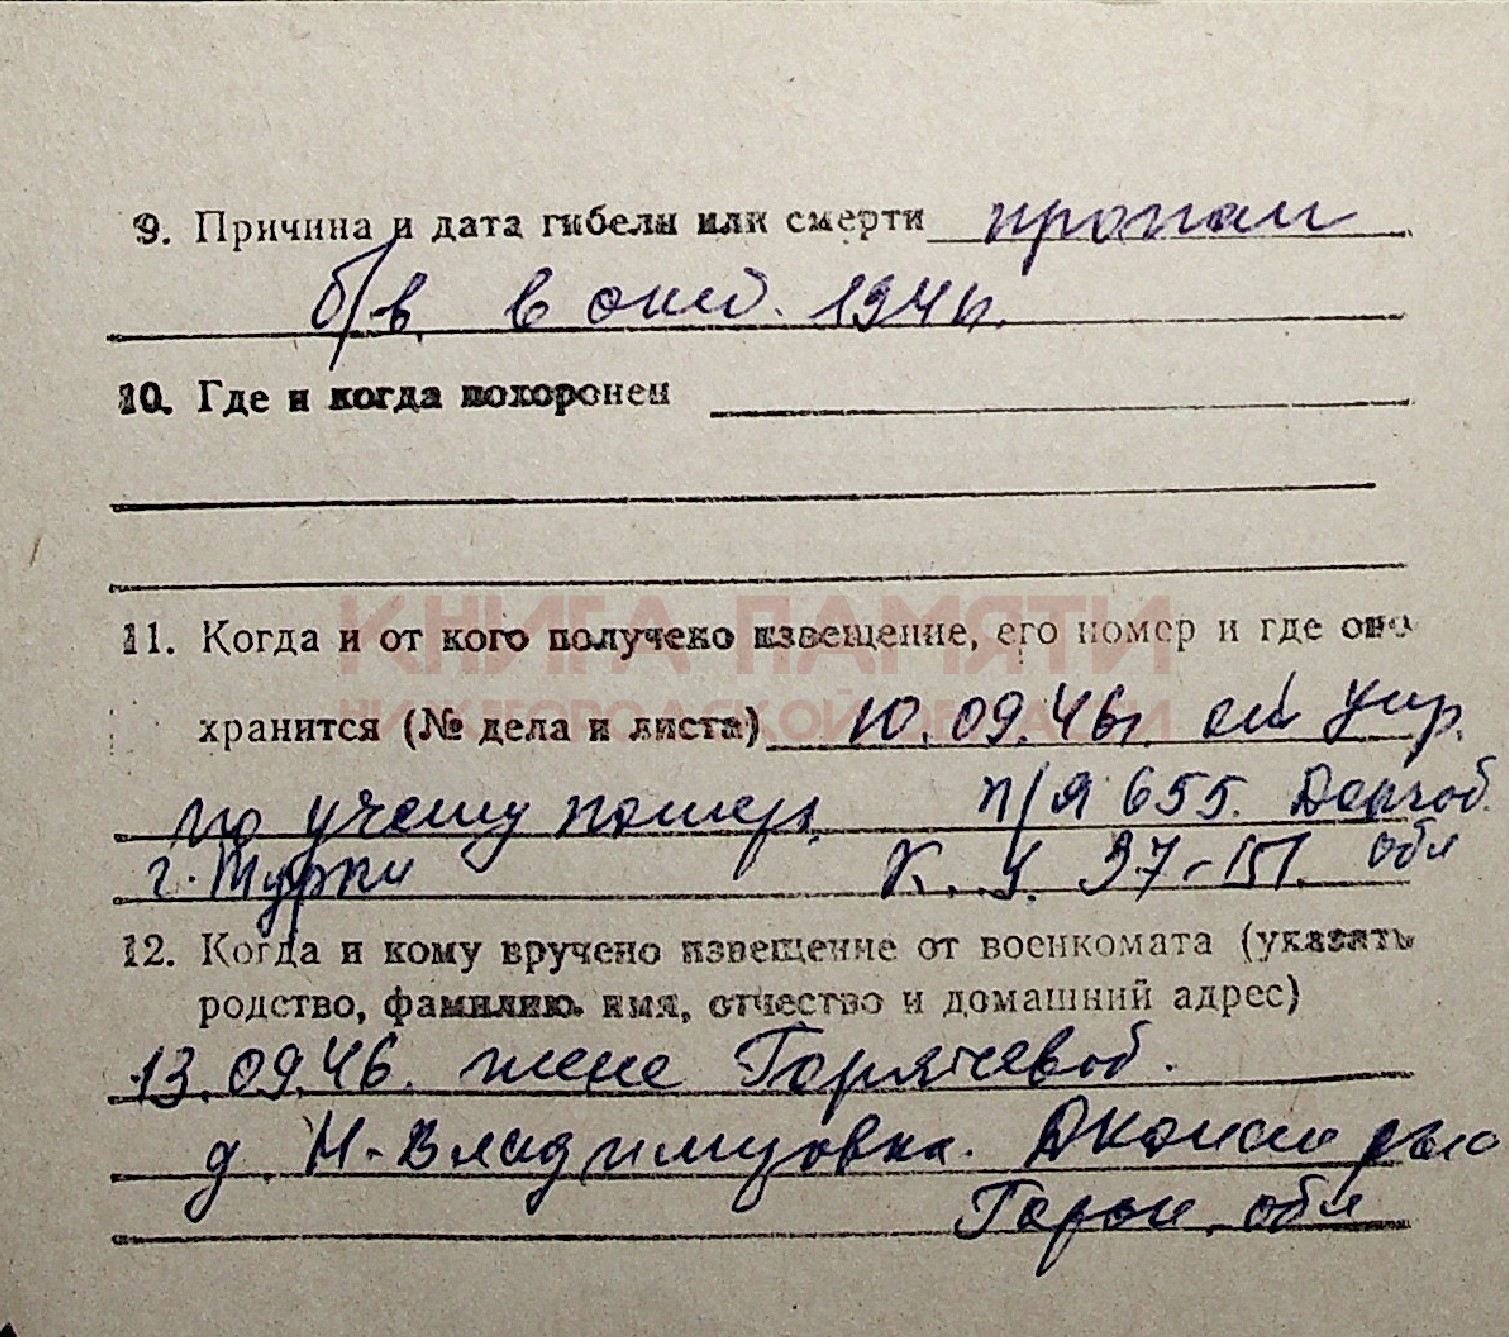 9. Причина и дата гибели или смерти пропал
б/в. в окт. 194 г.
10. Где и когда похоронен
КНИГА ПАМЯТИ
11. Когда и от кого получено извещение, его номер и где оно
НИЖЕГОРОДСКОЙ ОБЛАСТИ
хранится (№ дела и листа) 10.09.46г. от Упр.
по учету потерь п/я 655.
г. К. У. 37- обл
12. Когда и кому вручено извещение от военкомата (указать
родство, фамилию, имя, отчество и домашний адрес)
13.09.46. жене Горячевой.
д. Н-Владимировка.
Горьк. обл